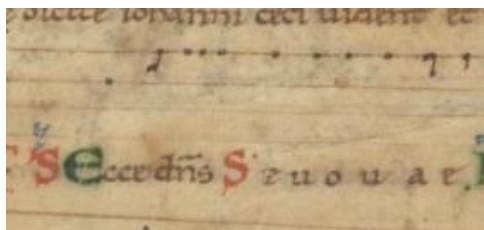 dicite iohanni ceci uident et
S Ecce dñs S e u o u a e